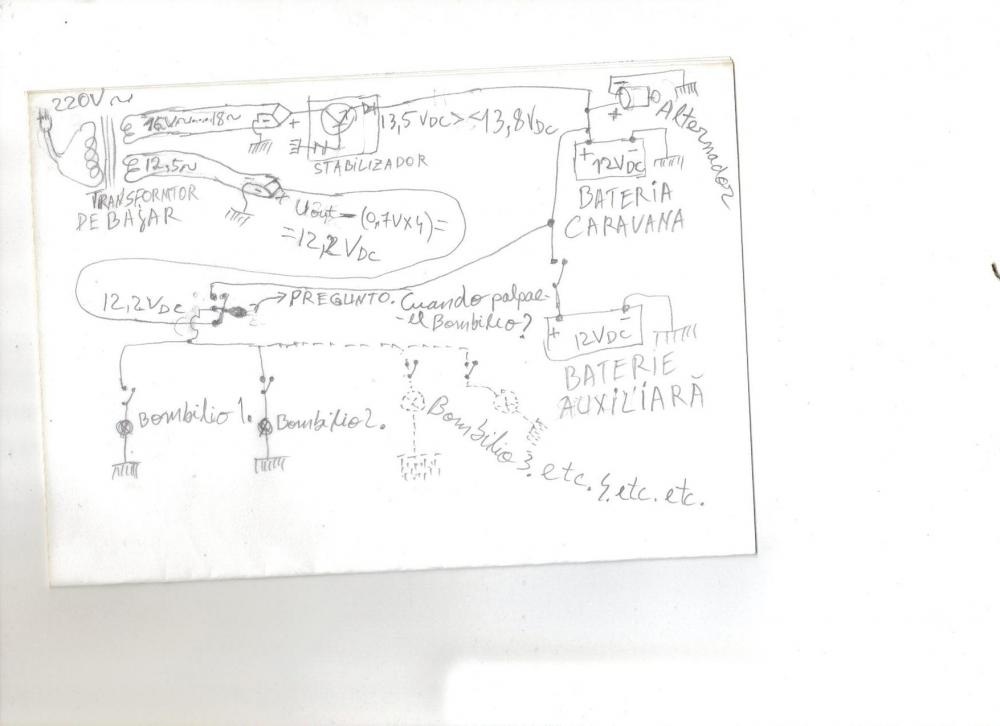 220V ~
16V~....18~
+
STABILIZADOR
13,5 VDC > ≤ 13,8 VDC
+
Alternador
+ 12VDC -
BATERIA
CARAVANA
12,5~
TRANSFORMTOR
DE BAJAR
+
Uout - (0,7V X 4) =
= 12,2 VDC
12,2 VDC
PREGUNTO. Cuando palpae-
-el Bombilio?
+ 12 VDC -
BATERIE
AUXILIARĂ
Bombilio 1.
Bombilio 2.
Bombilio 3. etc. 4, etc. etc.